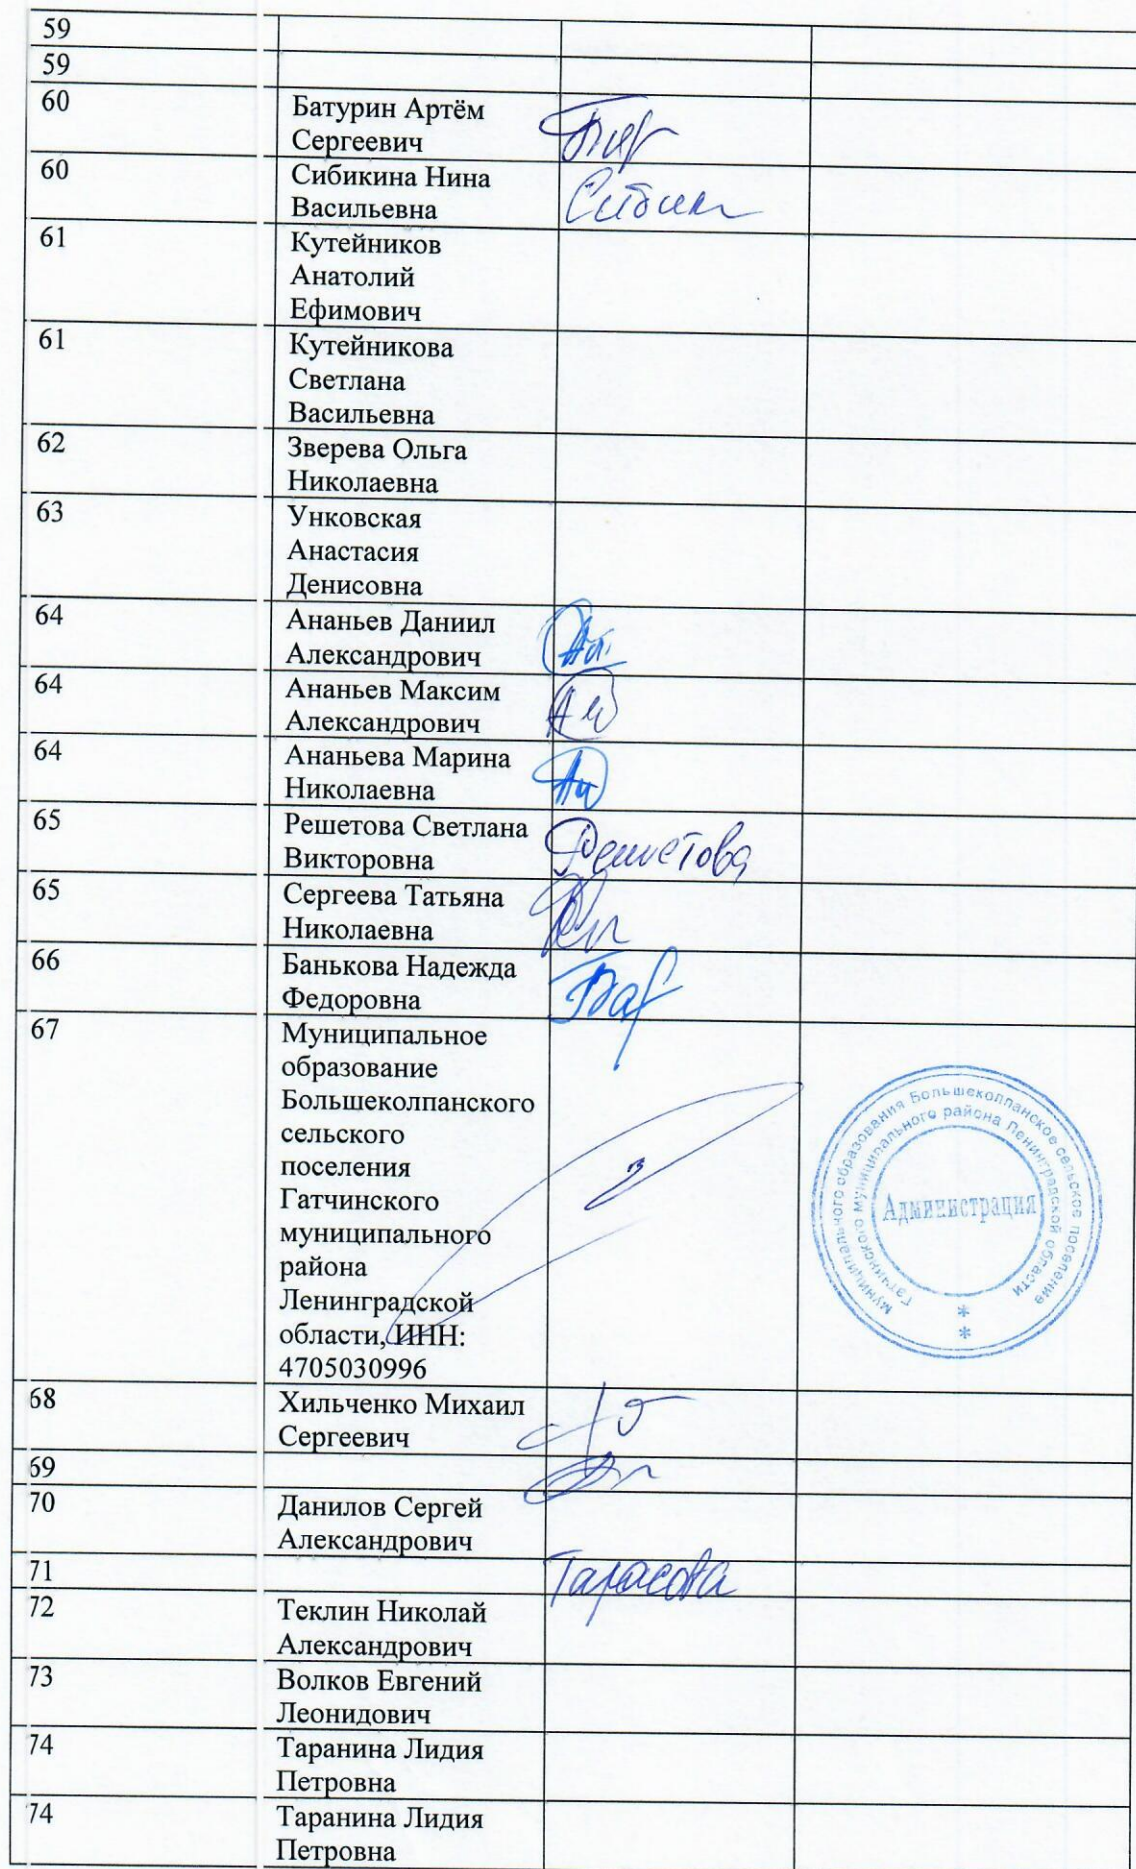 59
59
60 Батурин Артём
Сергеевич
60 Сибикина Нина
Васильевна
Сибики
61 Кутейников
Анатолий
Ефимович
61 Кутейникова
Светлана
Васильевна
62 Зверева Ольга
Николаевна
63 Унковская
Анастасия
Денисовна
64 Ананьев Даниил
Александрович
64 Ананьев Максим
Александрович
64 Ананьева Марина
Николаевна
65 Решетова Светлана
Викторовна
Решетова
65 Сергеева Татьяна
Николаевна
66 Банькова Надежда
Федоровна
67 Муниципальное
образование
Большеколпанского
сельского
поселения
Гатчинского
муниципального
района
Ленинградской
области, ИНН:
4705030996
муниципального образования Большеколпанское сельское поселение
Гатчинского муниципального района Ленинградской области
Администрация
68 Хильченко Михаил
Сергеевич
69
70 Данилов Сергей
Александрович
71 Тарасова
72 Теклин Николай
Александрович
73 Волков Евгений
Леонидович
74 Таранина Лидия
Петровна
74 Таранина Лидия
Петровна